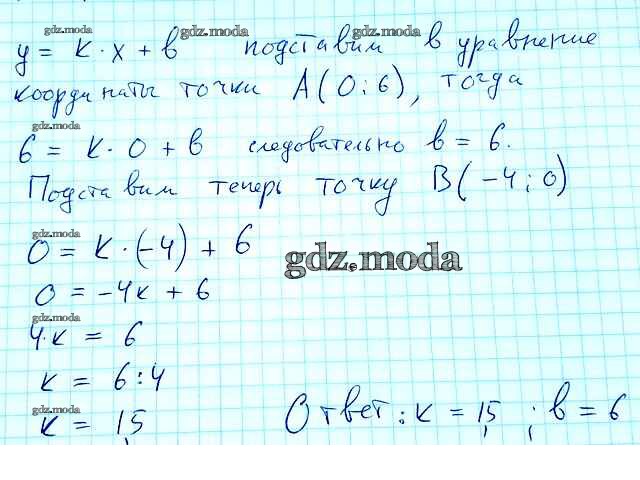 gdz.moda gdz.moda gdz.moda
y = k · x + b подставим в уравнение
координаты точки A(0;6), тогда
gdz.moda
6 = k · 0 + b следовательно b = 6.
Подставим теперь точку B(-4;0)
gdz.moda
0 = k·(-4) + 6
gdz.moda
0 = -4k + 6
gdz.moda
4·k = 6
k = 6:4
gdz.moda
k = 1,5 Ответ: k = 1,5 ; b = 6